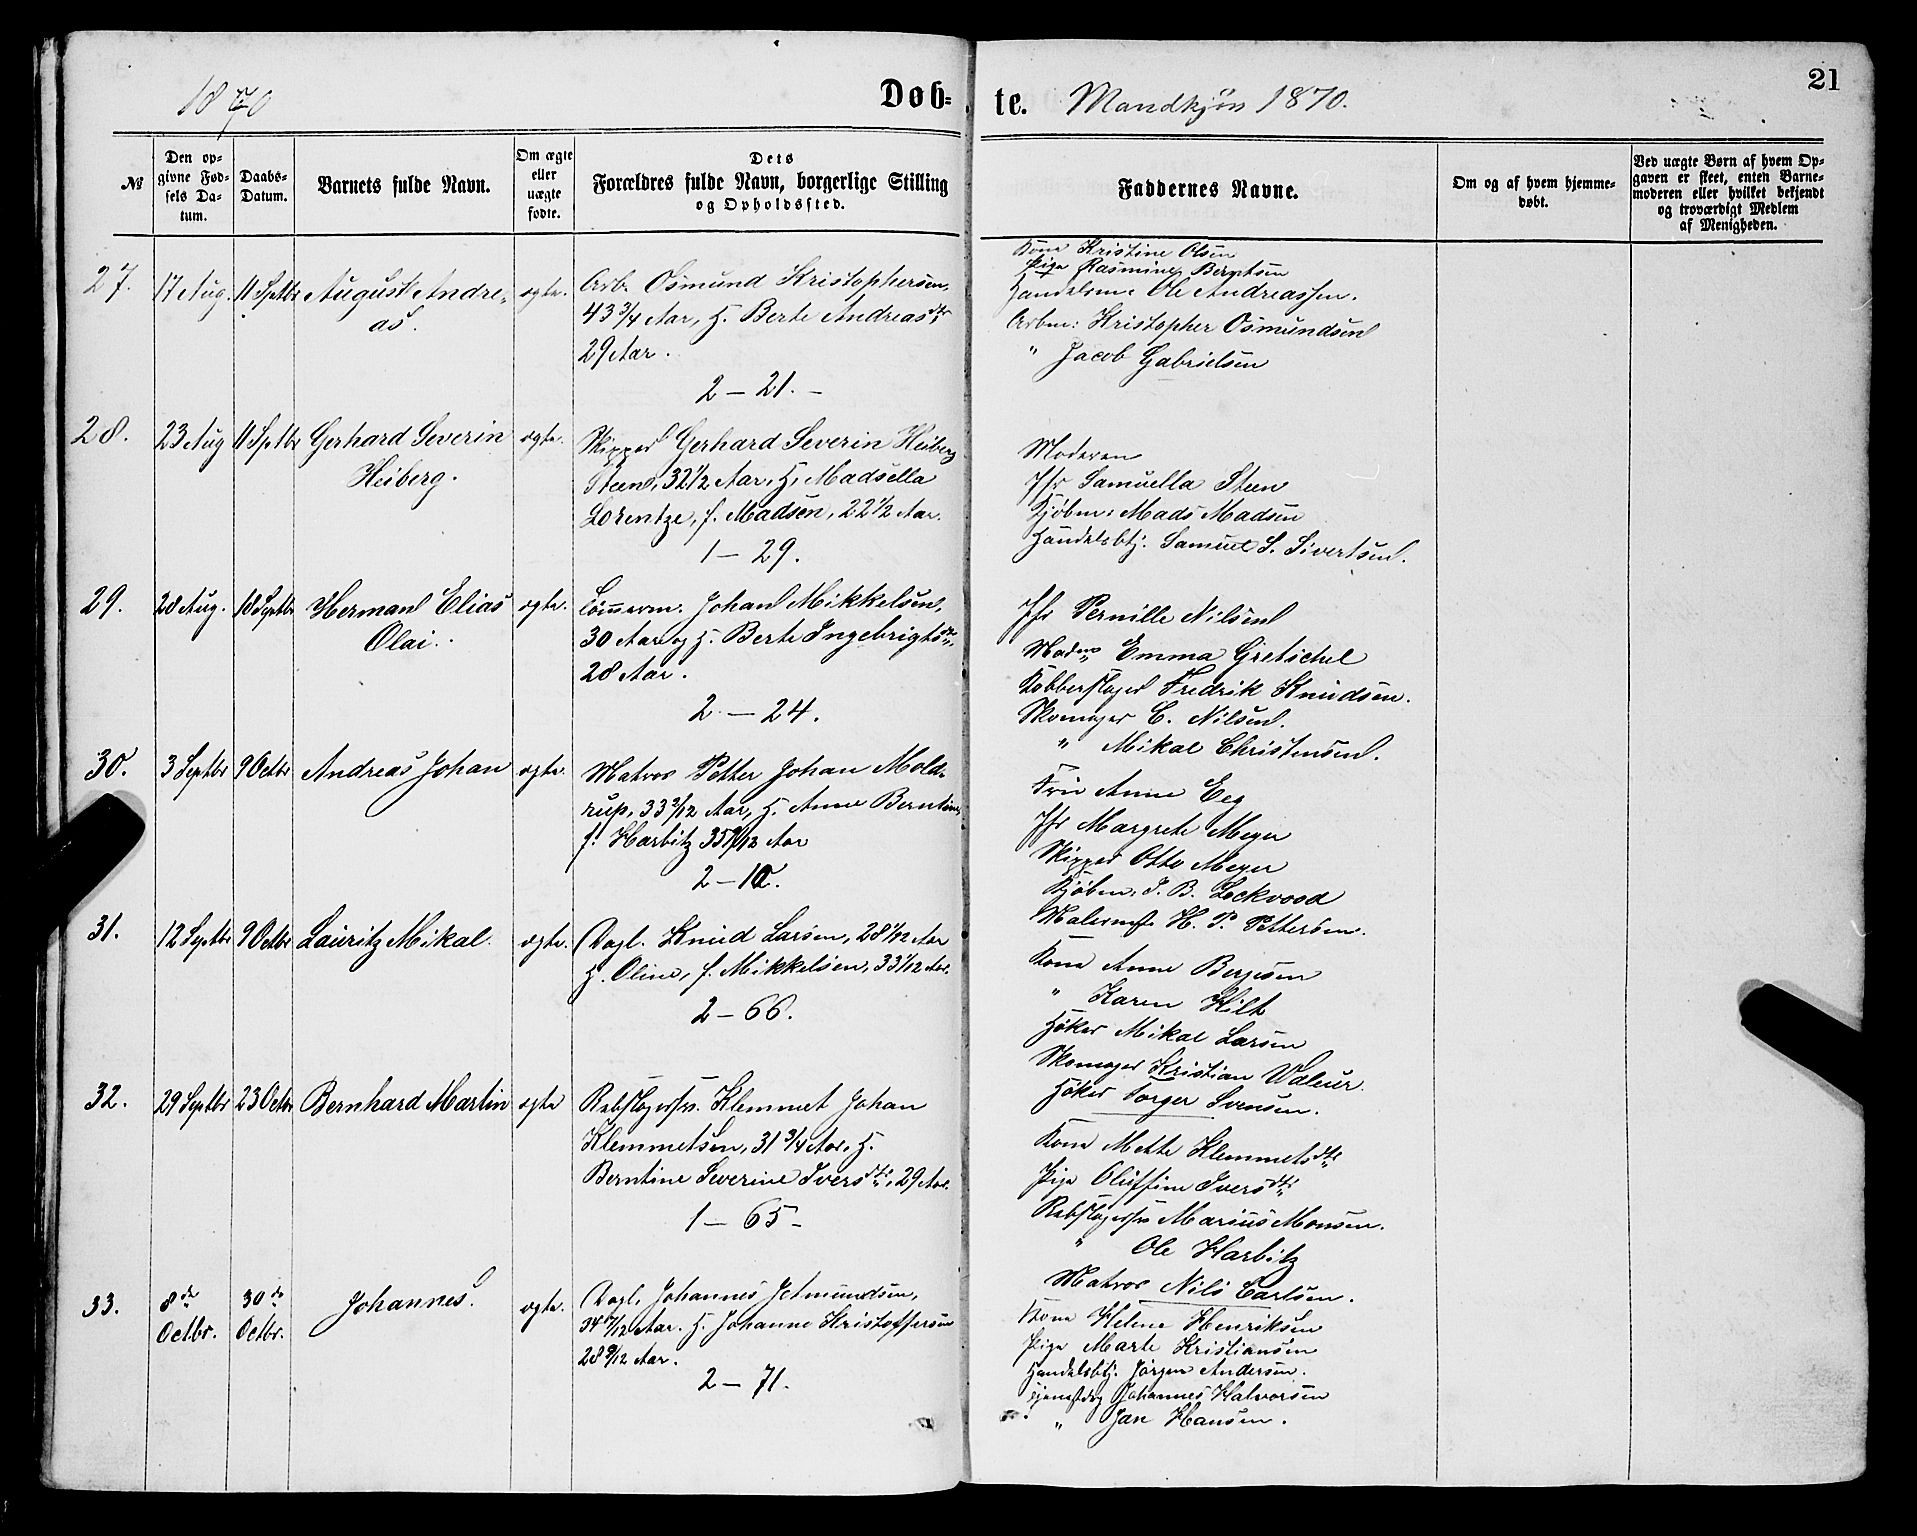 1870
Døb-
te. Mandkjøn 1870.
21
№
Den op-
givne Fød-
sels Da-
tum.
Daabs-
Datum.
Barnets fulde Navn.
Om ægte
eller
uægte
fødte.
Dets
Forældres fulde Navn, borgerlige Stilling
og Opholdssted.
Faddernes Navne.
Om og af hvem hjemme-
døbt.
Ved uægte Børn af hvem Op-
gaven er skeet, enten Barne-
moderen eller hvilket bekjendt
og troværdigt Medlem
af Menigheden.
27. 17 Aug. 11 Septbr August Andre-
as.
ægte.
Arb. Osmund Kristophersen,
43 3/4 Aar, H. Berte Andreasdtr
29 Aar.
2 – 21. –
Kone Kristine Olsen
Pige Rasmine Berntsen
Handelsm. Ole Andreassen.
Arbm: Kristopher Osmundsen
" Jacob Gabrielsen
28. 23 Aug 11 Septbr Gerhard Severin
Heiberg.
ægte.
Skipper Gerhard Severin Heiberg
Steen, 32 1/2 Aar, H. Madsella
Lorentze, f. Madsen, 22 1/2 Aar.
1 – 29.
Moderen
Jfr Samuella Steen
Kjøbm: Mads Madsen
Handelsbtj. Samuel S. Sivertsen.
29. 28 Aug. 18 Septbr Herman Elias
Olai.
ægte.
Tømmerm. Johan Mikkelsen,
30 Aar og H. Berte Ingebrigtsdtr.
28 Aar.
2 – 24.
Jfr Pernille Nilsen
Madm Emma Gretschel
Kobberslager Fredrik Knudsen.
Skomager C. Nilsen.
" Mikal Christensen.
30. 3 Septbr 9 Octbr Andreas Johan ægte.
Matros Petter Johan Mold-
rup, 33 2/12 Aar, H. Anne Berntine,
f. Harbitz 35 9/12 Aar
2 – 10.
Fru Anne Eeg
Jfr Margrete Meyer
Skipper Otto Meyer
Kjøbm. J. B. Lockvood
Malermst. H. P. Pettersen.
31. 12 Septbr 9 Octbr Lauritz Mikal. ægte.
Dagl. Knud Larsen, 28 1/12 Aar
H. Oline, f. Mikkelsen, 33 1/12 Aar.
2 – 66.
Kone Anne Bergesen
" Karen Hilt
Høker Mikal Larsen
Skomager Kristian Valeur.
Høker Torger Svensen.
32. 29 Septbr 23 Octbr Bernhard Martin ægte
Rebslagersv. Klemmet Johan
Klemmetsen, 31 3/4 Aar, H.
Berntine Severine Iversdtr, 29 Aar.
1 – 65 –
Kone Mette Klemmetsdtr
Pige Oluffine Iversdtr
Rebslagersv Marius Monsen.
" Ole Harbitz
Matros Nils Carlsen.
33. 8de
Octbr.
30de
Octbr.
Johannes. ægte.
Dagl. Johannes Jetmundsen,
34 Aar. H. Johanne Kristoffersen
28 9/12 Aar.
2 – 71.
Kone Helene Henriksen
Pige Marte Kristiansen
Handelsbtj. Jørgen Andersen.
Johannes Halvorsen
" Jan Hansen.